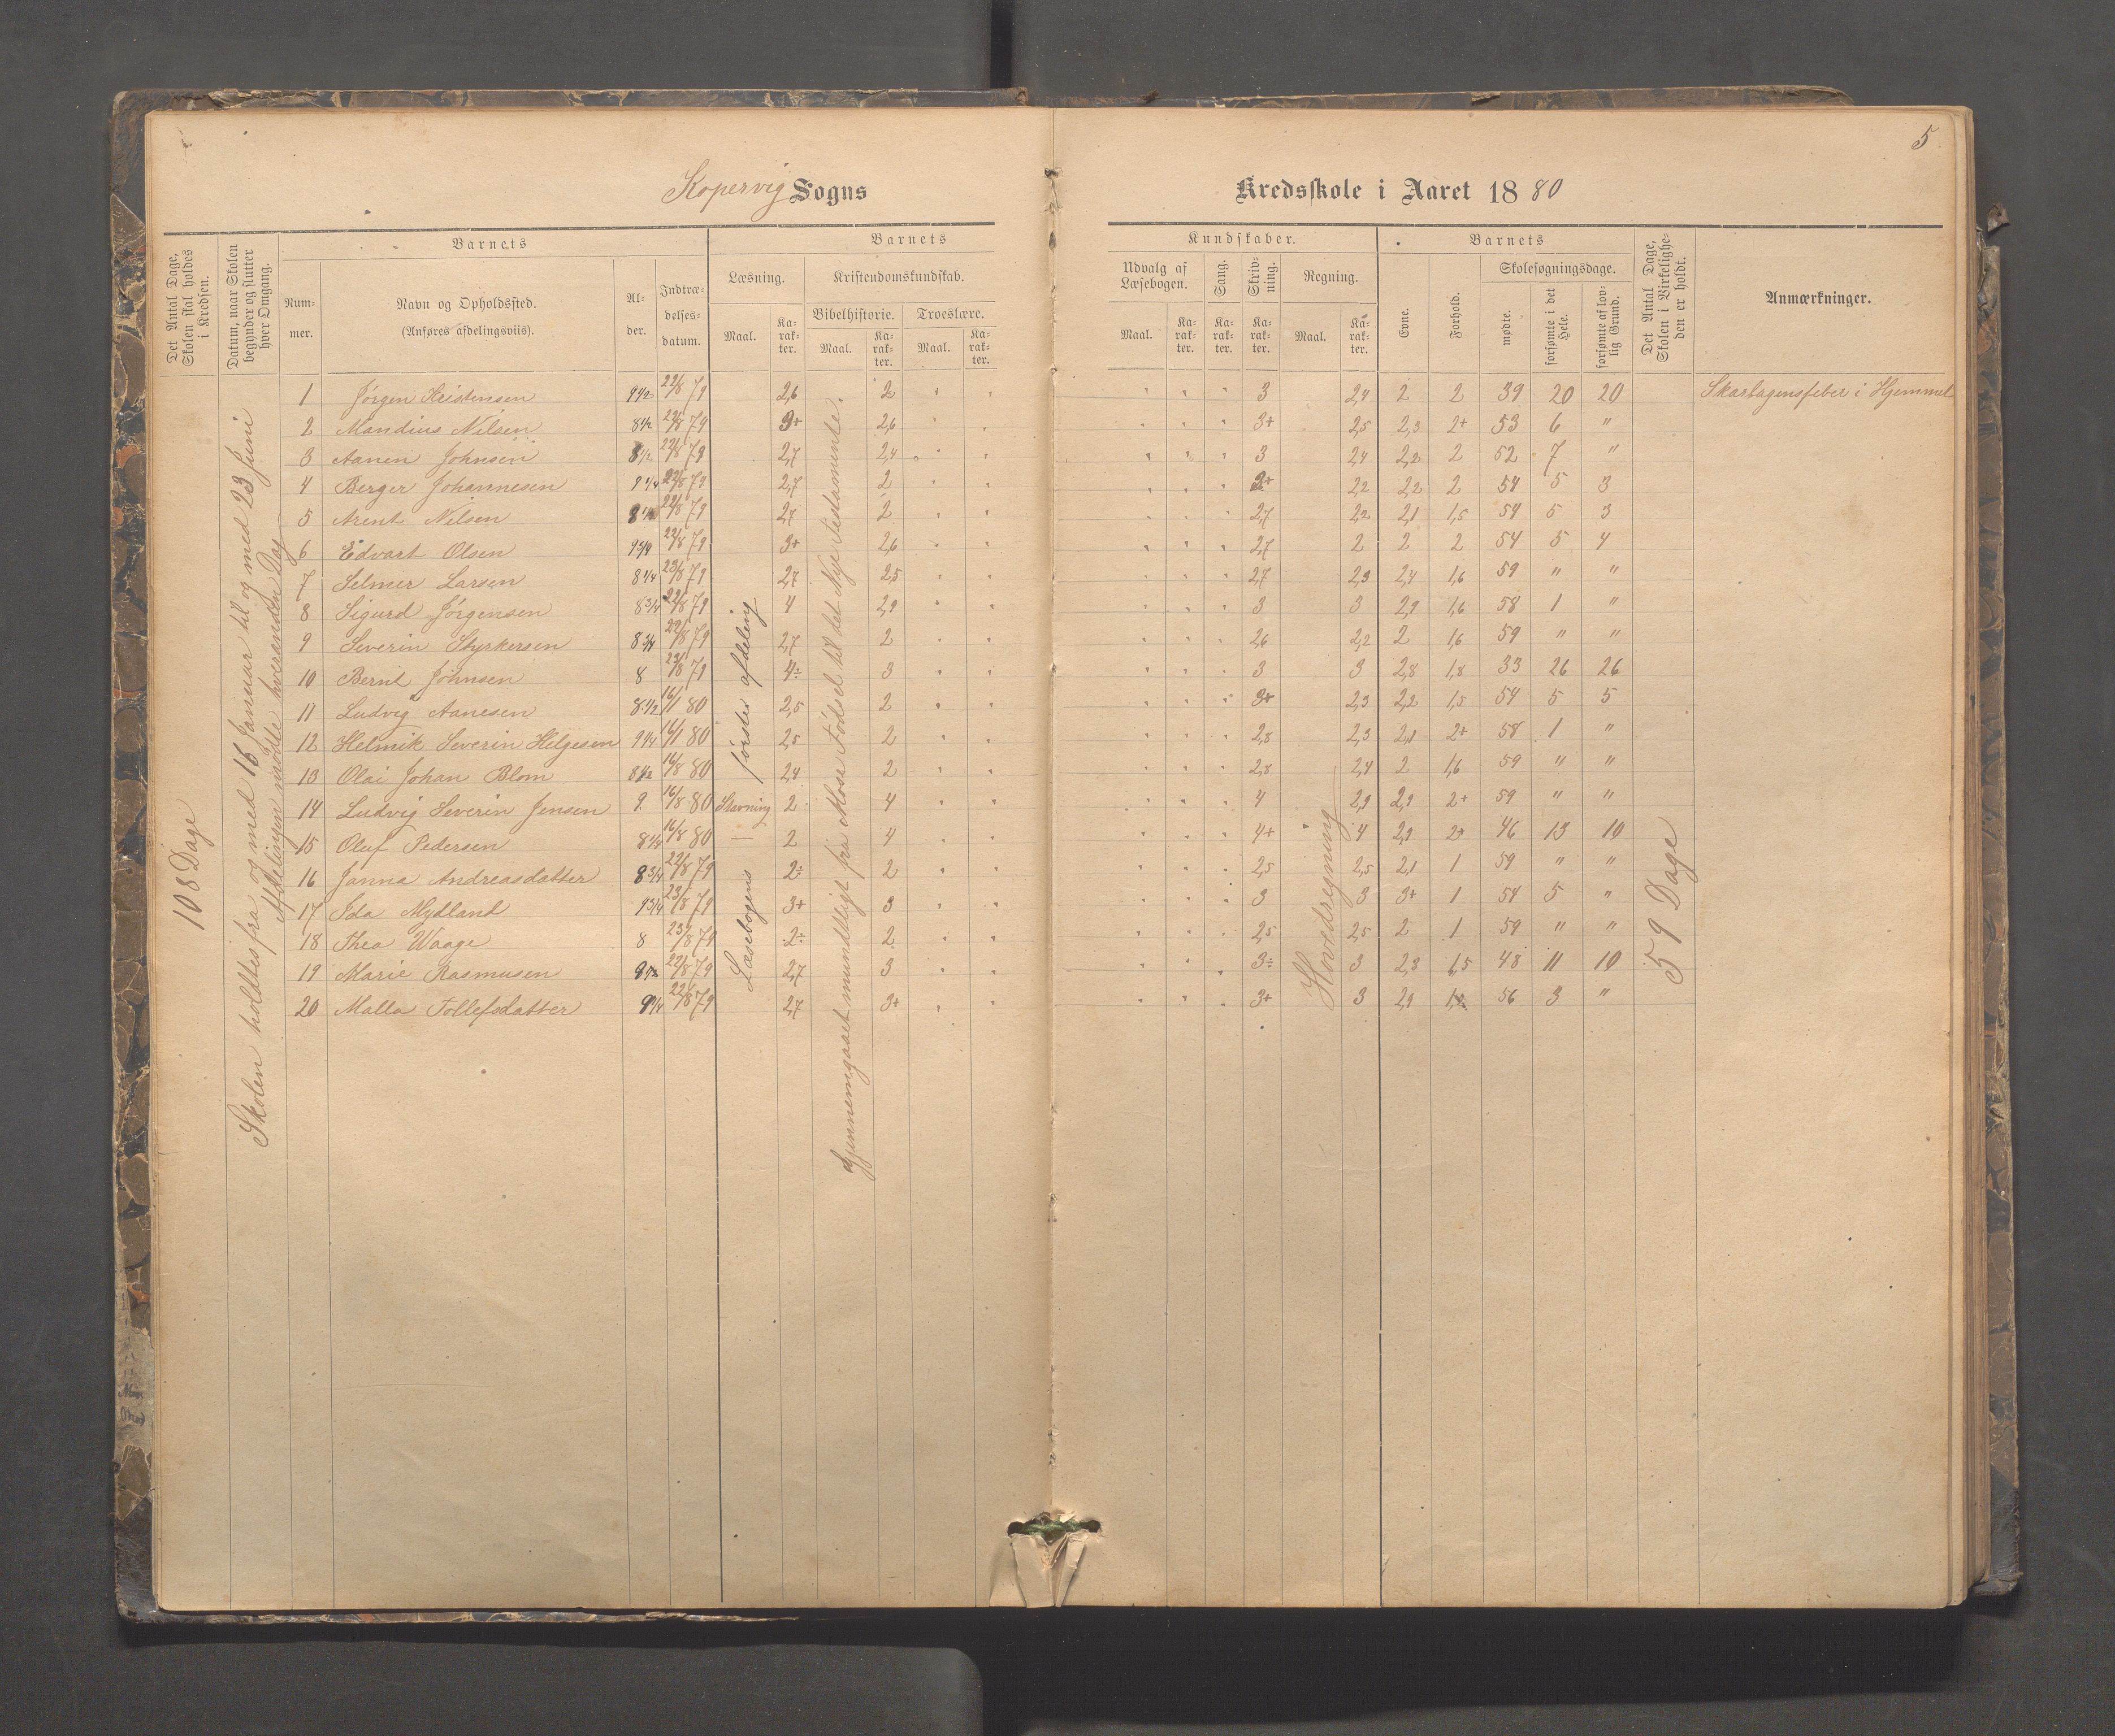 5
Kopervig Sogns Kredsskole i Aaret 1880
Det Antal Dage, Skolen skal holdes i Kredsen.
Datum, naar Skolen begynder og slutter hver Omgang.
Barnets
Nummer.
Navn og Opholdssted.
(Anføres afdelingsviis).
Alder.
Indtrædelsesdatum.
Barnets
Læsning.
Maal.
Karakter.
Kristendomskundskab.
Bibelhistorie.
Maal.
Karakter.
Troeslære.
Maal.
Karakter.
Kundskaber.
Udvalg af Læsebogen.
Maal.
Karakter.
Sang.
Karakter.
Skrivning.
Karakter.
Regning.
Maal.
Karakter.
Barnets
Evne.
Forhold.
Skolesøgningsdage.
mødte.
forsømte i det Hele.
forsømte af lovlig Grund.
Det Antal Dage, Skolen i Virkeligheden er holdt.
Anmærkninger.
108 Dage
Skolen holdtes fra og med 16 Januar til og med 23 Juni
Afdelingen mødte hverandren Dag
Læsebogens første afdeling
Gjennemgaaet mundtligt fra Mose Fødsel til det Nye Testamente.
Hovedregning
59 Dage
1 Jørgen Kristensen 9 1/2 22/8 79 2,6 2 3 2,4 2 2 39 20 20 Skarlagensfeber i Hjemmet
2 Mandius Nilsen 8 1/2 22/8 79 3+ 2,6 3+ 2,5 2,3 2+ 53 6 "
3 Aanen Johnsen 8 1/2 22/8 79 2,7 2,4 3 2,4 2,2 2 52 7 "
4 Berger Johannesen 9 1/4 22/8 79 2,7 2 3+ 2,2 2,2 2 54 5 3
5 Arent Nilsen 22/8 79 2,7 2 2,7 2,2 2,1 1,5 54 5 3
6 Edvart Olsen 9 3/4 22/8 79 3+ 2,6 2,7 2 2 2 54 5 4
7 Selmer Larsen 8 1/4 23/8 79 2,7 2,5 2,7 2,3 2,4 1,6 59 " "
8 Sigurd Jørgensen 8 3/4 22/8 79 4 2,9 3 3 2,9 1,6 58 1 "
9 Severin Styrkersen 8 3/4 22/8 79 2,7 2 2,6 2,2 2 1,6 59 " "
10 Bernt Johnsen 8 22/8 79 4÷ 3 3 3 2,8 1,8 33 26 26
11 Ludvig Aanesen 8 1/2 16/1 80 2,5 2 3+ 2,3 2,2 1,5 54 5 5
12 Helmik Severin Helgesen 9 1/4 16/1 80 2,5 2 2,8 2,3 2,1 2+ 58 1 "
13 Olai Johan Blom 8 1/2 16/8 80 2,4 2 2,8 2,4 2 1,6 59 " "
14 Ludvig Severin Jensen 9 16/8 80 Stavning 2 4 4 2,9 2,9 2+ 59 " "
15 Oluf Pedersen 8 1/4 16/8 80 — 2 4 4+ 4 2,9 2+ 46 13 10
16 Janna Andreasdatter 8 3/4 22/8 79 2÷ 2 2,5 2,5 2,1 1 59 " "
17 Ida Mydland 9 3/4 23/8 79 3+ 3 3 3 3+ 1 54 5 "
18 Thea Waage 8 23/8 79 2÷ 2 2,5 2,5 2 1 59 " "
19 Marie Rasmusen 22/8 79 2,7 3 3÷ 3 2,3 1,5 48 11 10
20 Malla Tollefsdatter 9 1/4 22/8 79 2,7 3+ 3+ 3 2,9 56 3 "